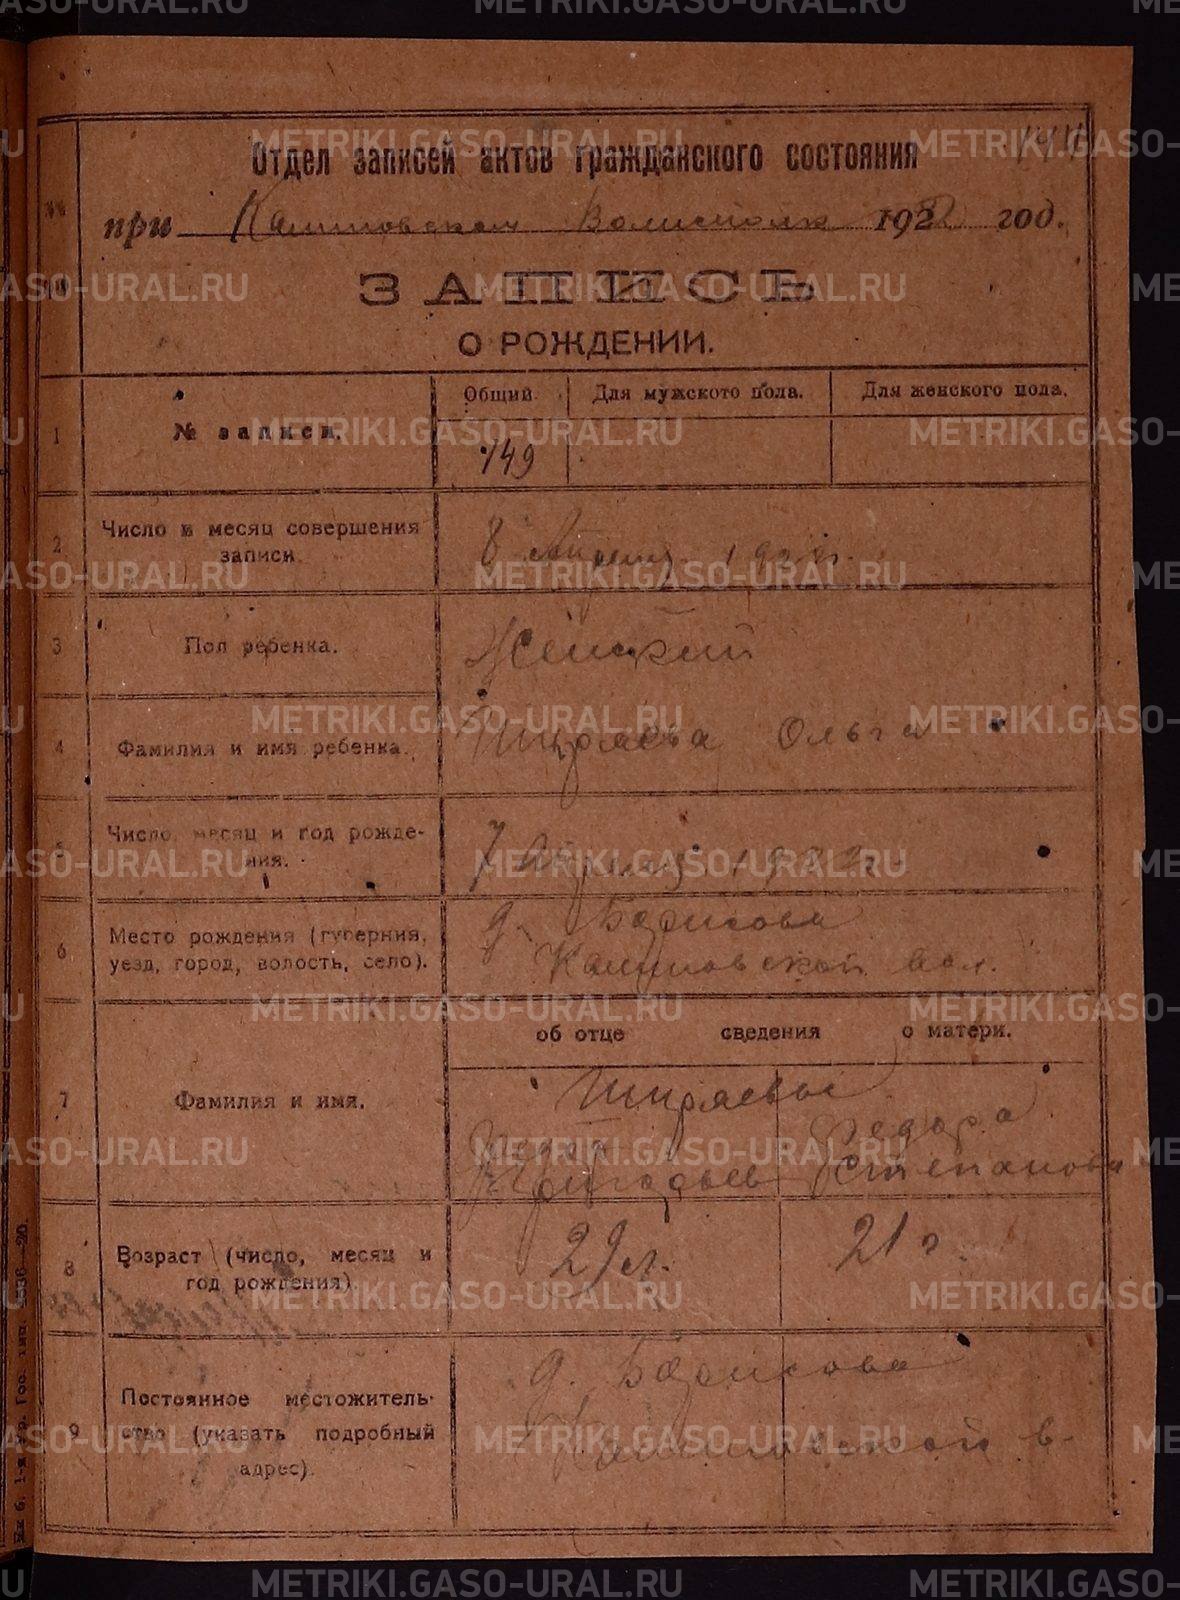 Отдел записей актов гражданского состояния
при Калиновском Волисполк 1922 год.
ЗАПИСЬ
О РОЖДЕНИИ.
Общий Для мужского пола. Для женского пола.
1 № записи. 149
2 Число и месяц совершения записи. 8 Апреля 1922 г.
3 Пол ребенка. Женский
4 Фамилия и имя ребенка. Ширяева Ольга
5 Число, месяц и год рожде-
ния. 7 Апреля 1922 г.
6 Место рождения (губерния,
уезд, город, волость, село). д. Борисова
вол.
об отце сведения о матери.
7 Фамилия и имя. Ширяевы
Федора
Степанова
8 Возраст (число, месяц и
год рождения). 29 л. 21 г.
9 Постоянное местожитель-
ство (указать подробный
адрес). д. Борисова
в.
METRIKI.GASO-URAL.RU